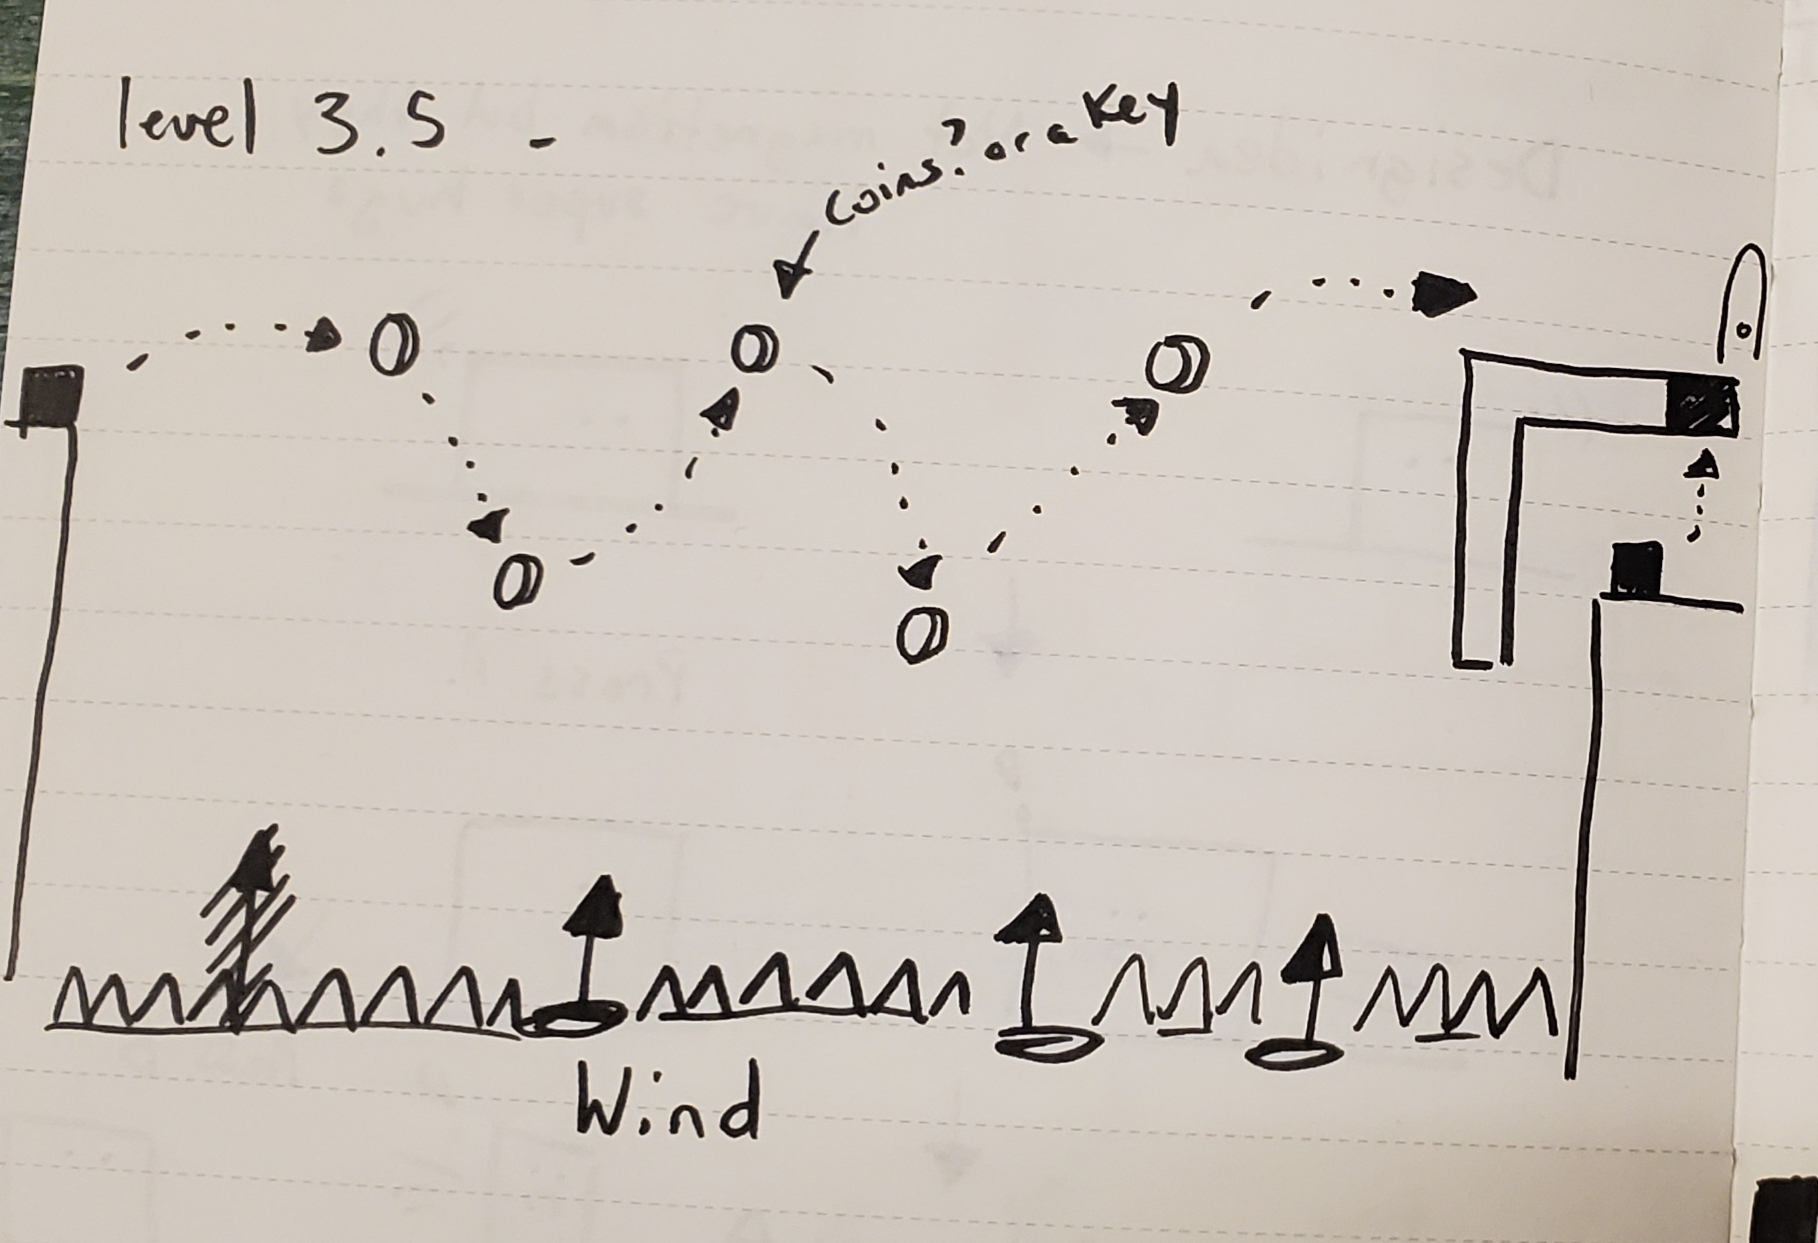 level 3.5 -
coins? or a Key
Wind